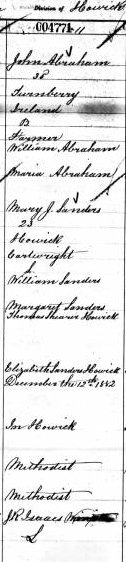 Division of Howick
004771
John Abraham
38
Turnberry
Ireland
B
Farmer
William Abraham
Maria Abraham
Mary J. Sanders
23
Howick
Cartwright
S
William Sanders
Margaret Sanders
Thomas Shearer Howick
Elizabeth Sanders Howick
December the 12th 1882
In Howick
Methodist
Methodist
J.R. Isaacs
L